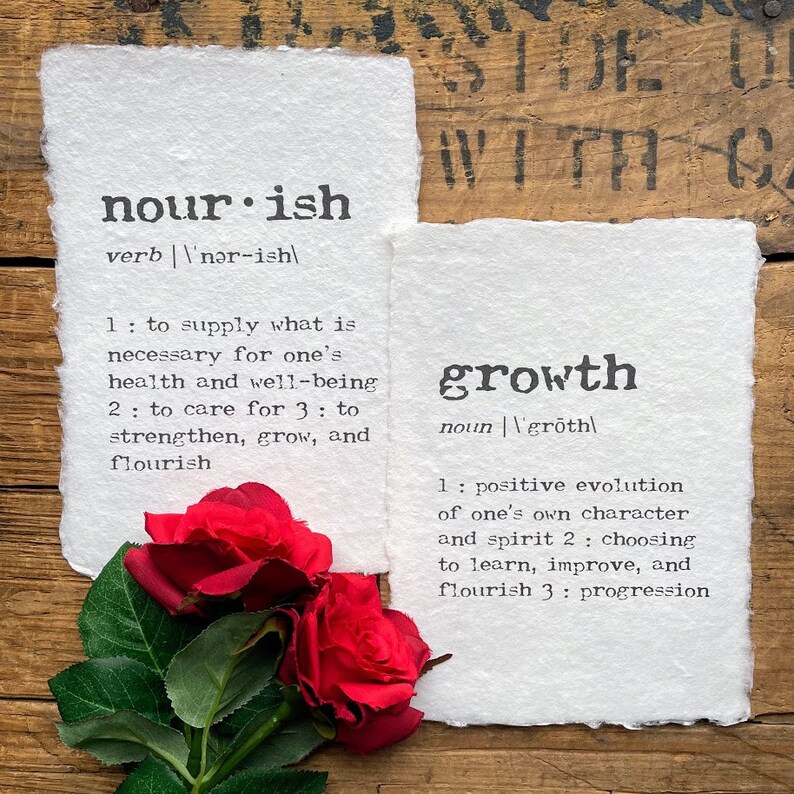 SIDE
WITH
nour·ish
verb | \ˈnər-ish\
1 : to supply what is
necessary for one's
health and well-being
2 : to care for 3 : to
strengthen, grow, and
flourish
growth
noun | \ˈgrōth\
1 : positive evolution
of one's own character
and spirit 2 : choosing
to learn, improve, and
flourish 3 : progression